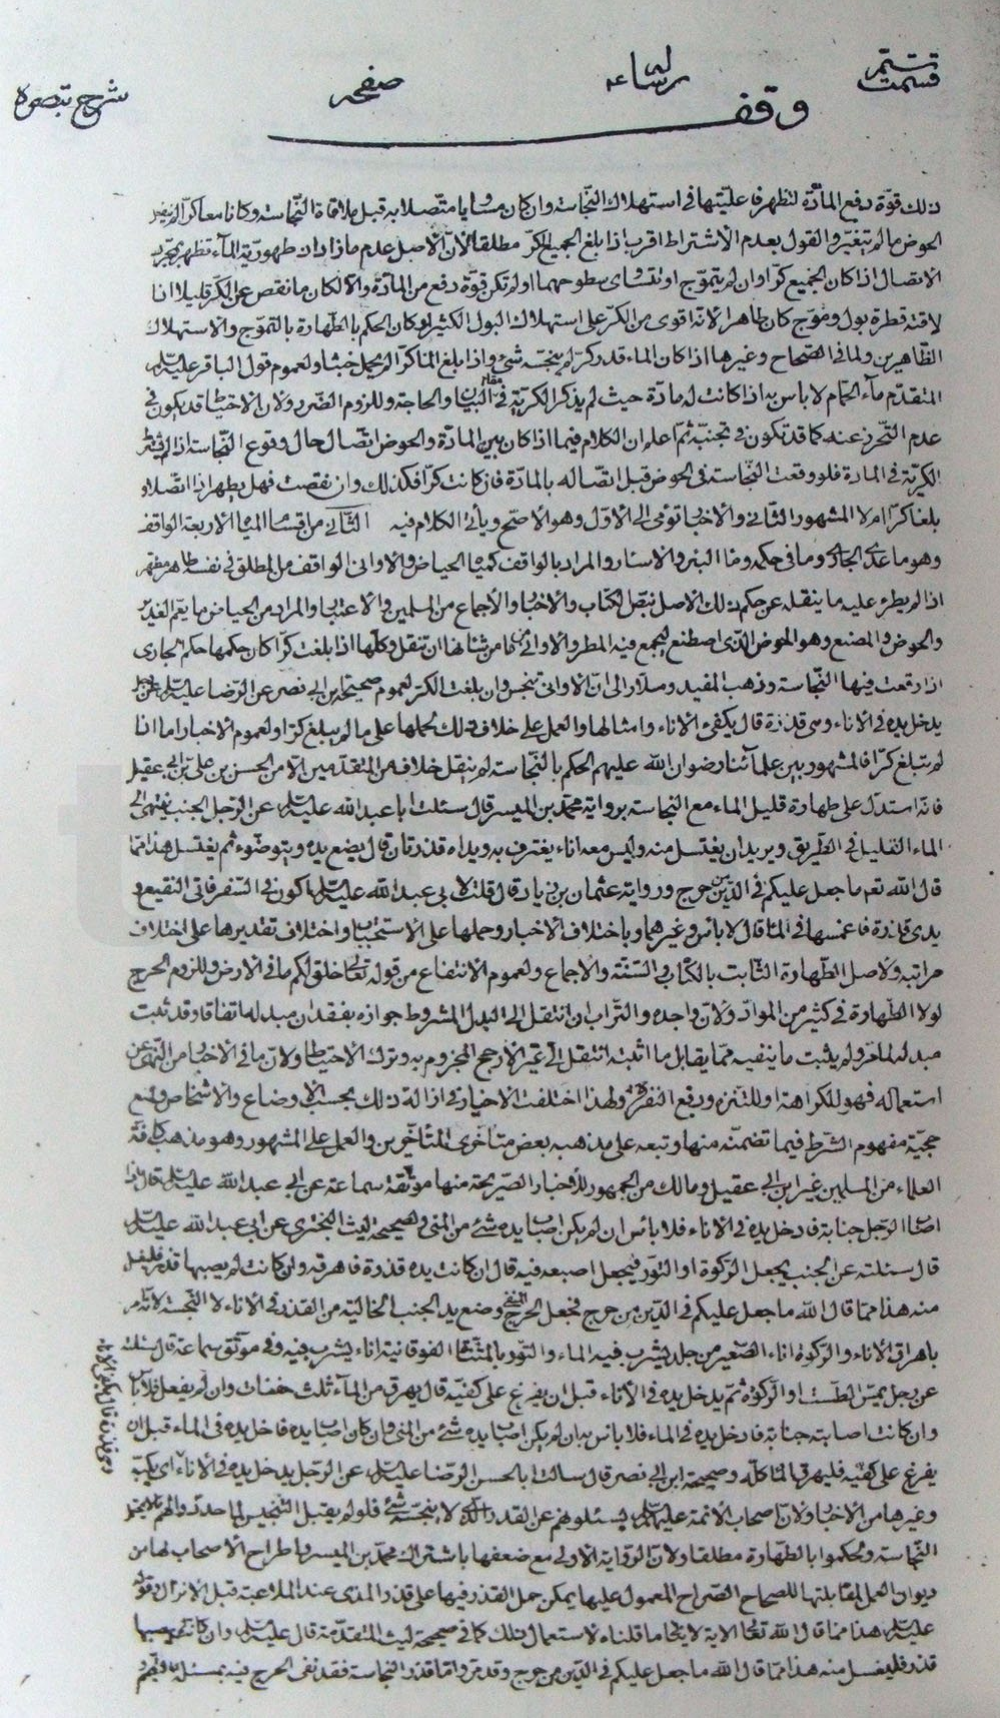 قسمت رساله صفحه شرح تبصره
وقف
ذلك قوّة دفع المادّة لتظهر فاعليّتها في استهلاك النّجاسة وان كان مساويا متّصلا به قبل ملاقاة النّجاسة وكانا معا كرّا لم ينفعل
الحوض ما لم يتغيّر والقول بعدم الاشتراط اقرب اذا بلغ الجميع الكرّ مطلقا لانّ الاصل عدم ما زاد طهوريّة الماء فتطهر بمجرّد
الاتصال اذا كان الجميع كرّا وان لم يتموّج او تتساوى سطوحهما او لم تكن قوّة دفع من المادّة والّا لكان ما نقص عن الكرّ قليلا اذا
لاقته قطرة بول وموّج كان طاهرا لانّه اقوى من الكرّ على استهلاك البول الكثير او كان الحكم بالطّهارة بالتموّج والاستهلاك
الظّاهرين ولما في الصّحاح وغيرها اذا كان الماء قدر كرّ لم ينجّسه شئ واذا بلغ الماء كرّا لم يحمل خبثا ولعموم قول الباقر عليه السلام
المتقدّم ماء الحمّام لا باس به اذا كانت له مادّة حيث لم يذكر الكريّة في مقام البيان والحاجة وللزوم الضّرر ولانّ الاحتياط قد يكون في
عدم التّحرّز عنه كما قد تكون في تجنّبه ثمّ اعلم ان الكلام فيما اذا كان بين المادّة والحوض اتّصال حال وقوع النّجاسة اذا اشترط
الكريّة في المادّة فلو وقعت النّجاسة في الحوض قبل اتّصاله بالمادّة فان كانت كرّا فكذلك وان نقصت فهل يطهر اذا اتّصلا و
بلغا كرّا ام لا المشهور الثّاني والاخبار تومى الى الاوّل وهو الاصحّ وياتي الكلام فيه الثّاني من اقسام المياه الاربعة الواقف
وهو ما عدى الجاري وما في حكمه وماء البئر والاسئار والمراد بالواقف كمياه الحياض والاواني الواقف من المطلق في نفسه طاهر مطهّر
اذا لم يطرء عليه ما ينقله عن حكم ذلك الاصل بنصّ الكتاب والاخبار والاجماع من المسلمين والاعتبار والمراد من الحياض ما يعمّ الغدير
والحوض والمصنع وهو الحوض الذي اصطنع ليجمع فيه المطر والاواني ما من شانها ان تنقل وكلّها اذا بلغت كرّا كان حكمها حكم الجاري
اذا وقعت فيها النّجاسة وذهب المفيد وسلّار الى انّ الاواني تنجس وان بلغت الكرّ لعموم صحيحة ابن ابي نصر عن الرّضا عليه السلام عن الرجل
يدخل يده في الاناء وهي قذرة قال يكفئ الاناء وامثالها والعمل على خلاف ذلك لحملها على ما لم يبلغ كرّا ولعموم الاخبار اما اذا
لم تبلغ كرّا فالمشهور بين علمائنا رضوان الله عليهم الحكم بالنّجاسة لم ينقل خلاف من المتقدّمين الا من الحسن بن علي بن ابي عقيل
فانّه استدلّ على طهارة قليل الماء مع النجاسة برواية محمّد بن الميسر قال سئلت ابا عبد الله عليه السلام عن الرّجل الجنب ينتهي الى
الماء القليل في الطّريق ويريد ان يغتسل منه وليس معه اناء يغترف به ويداه قذرتان قال يضع يده ويتوضّوء ثم يغتسل هذا ممّا
قال الله تعالى ما جعل عليكم في الدّين من حرج ورواية عثمان بن زياد قال قلت لابي عبد الله عليه السلام اكون في السّفر فاتي النّقيع و
يدي قذرة فاغمسها في الماء قال لا باس وغيرهما وباختلاف الاخبار وحملها على الاستحباب واختلاف تقديرها على اختلاف
مراتبه ولاصل الطّهارة الثّابت بالكتاب والسّنّة والاجماع ولعموم الانتفاع من قوله تعالى خلق لكم ما في الارض وللزوم الحرج
لولا الطّهارة في كثير من الموادّ ولانّ واجده والتّراب ان انتقل الى البدل المشروط جوازه بفقدان مبدله اتفاقا وقد ثبت
مبدله لما مرّ ولم يثبت ما ينفيه ممّا يقابل ما اثبته انتقل الى غير الارجح المجزوم به وترك الاحتياط ولانّ ما في الاخبار من النّهي عن
استعماله فهو للكراهة او للتّنزّه ورفع النّفرة ولهذا اختلفت الاخبار في ازالة ذلك بحسب الاوضاع والاشخاص ولمنع
حجيّة مفهوم الشّرط فيما تضمّنه منها وتبعه على مذهبه بعض متاخري المتاخّرين والعمل على المشهور وهو مذهب كافّة
العلماء من المسلمين غير ابن ابي عقيل ومالك من الجمهور للاخبار الصّريحة منها موثّقة سماعة عن ابي عبد الله عليه السلام قال اذا
اصاب الرّجل جنابة فادخل يده في الاناء فلا باس ان لم يكن اصاب يده شئ من المنيّ وصحيحة ليث البختري عن ابي عبد الله عليه السلام
قال سئلته عن الجنب يجعل الرّكوة او التّور فيجعل اصبعه فيه قال ان كانت يده قذرة فاهرقه وان كانت لم يصبها قذر فليغتسل
منه هذا ممّا قال الله ما جعل عليكم في الدّين من حرج فجعل الحرج المنفي وضع يد الجنب الخالية من القذر في الاناء لا النّجسة لانّه امر
باهراق الاناء والرّكوة اناء الصّغير من جلد يشرب فيه الماء والتّور بالمثنّاة الفوقانية اناء يشرب فيه وفي موثّق سماعة قال سئلته
عن رجل يمسّ الطّست او الرّكوة ثمّ يدخل يده في الاناء قبل ان يفرغ على كفّيه قال يهرق من الماء ثلث حفنات وان لم يفعل فلا باس
وان كانت اصابته جنابة فادخل يده في الماء فلا باس به ان لم يكن اصاب يده شئ من المنيّ وان كان اصاب يده فادخل يده في الماء قبل ان
يفرغ على كفّيه فليهرق الماء كلّه وصحيحة ابن ابي نصر قال سالت ابا الحسن الرّضا عليه السلام عن الرّجل يدخل يده في الاناء اي يكبّه
وغيرها من الاخبار ولانّ اصحاب الائمة عليهم السلام يسئلونهم عن القدر الذي لا ينجّسه شئ فلو لم يقبل التّنجيس لما حدّدوا لهم
النّجاسة ولحكموا بالطّهارة مطلقا ولانّ الرّواية الاولى مع ضعفها باشتراك محمّد بن الميسر واطراح الاصحاب لها من
ديوان العمل لمقابلتها للصّحاح الصّراح المعمول عليها يمكن حمل القذر فيها على قذر المذي عند الملاعبة قبل الانزال وقوله
عليه السلام هذا ممّا قال الله تعالى الاية لا ينافي ما قلناه لاستعمال ذلك كما في صحيحة ليث المتقدّمة قال عليه السلام وان كانت لم يصبها
قذر فليغتسل منه هذا ممّا قال الله ما جعل عليكم في الدّين من حرج وقد مرّ وامّا قذر النّجاسة فقد نفى الحرج فيه
وهي قذرة قال يكفئ الاناء